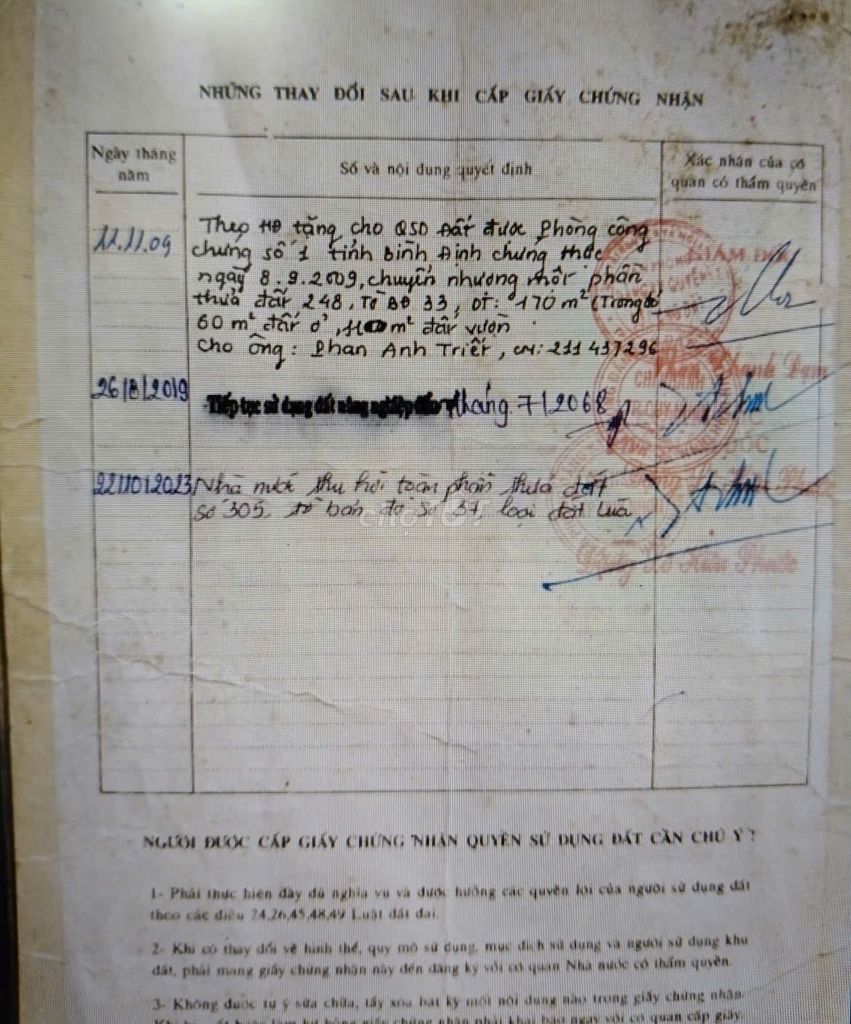 NHỮNG THAY ĐỔI SAU KHI CẤP GIẤY CHỨNG NHẬN
Ngày tháng năm
Số và nội dung quyết định
Xác nhận của cơ quan có thẩm quyền
11.11.09
Theo HĐ tặng cho QSD Đất được Phòng công
chứng số 1 tỉnh Bình Định chứng thực
ngày 8.9.2009, chuyển nhượng một phần
thửa đất 248, Tờ BĐ 33, DT: 170 m² (Trong đó
60 m² đất ở, 110 m² đất vườn
cho ông: Phan Anh Triết, CM: 211437296
26/8/2019
Tiếp tục sử dụng đất nông nghiệp đến tháng 7/2068
22/10/2023
Nhà nước thu hồi toàn phần thửa đất
số 305, tờ bản đồ số 37 loại đất Lúa
CHỢ TỐT
NGƯỜI ĐƯỢC CẤP GIẤY CHỨNG NHẬN QUYỀN SỬ DỤNG ĐẤT CẦN CHÚ Ý :
1- Phải thực hiện đầy đủ nghĩa vụ và được hưởng các quyền lợi của người sử dụng đất
theo các điều 24,26,45,48,49 Luật đất đai.
2- Khi có thay đổi về hình thể, quy mô sử dụng, mục đích sử dụng và người sử dụng khu
đất, phải mang giấy chứng nhận này đến đăng ký với cơ quan Nhà nước có thẩm quyền.
3- Không được tự ý sửa chữa, tẩy xóa bất kỳ một nội dung nào trong giấy chứng nhận.